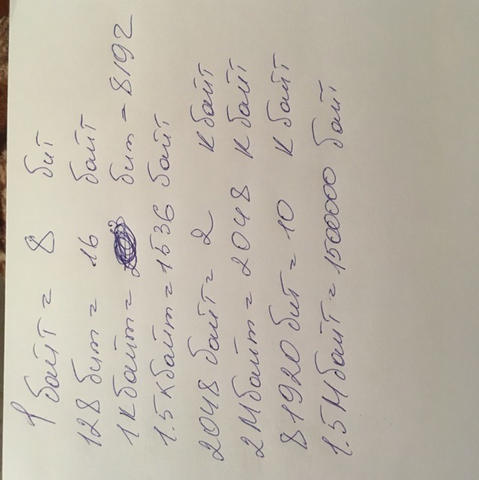 1 байт = 8 бит
128 бит = 16 байт
1 Кбайт = бит = 8192
1.5 Кбайт = 1536 байт
2048 байт = 2 Кбайт
2 Мбайт = 2048 Кбайт
81920 бит = 10 Кбайт
1.5 Мбайт = 1500000 байт